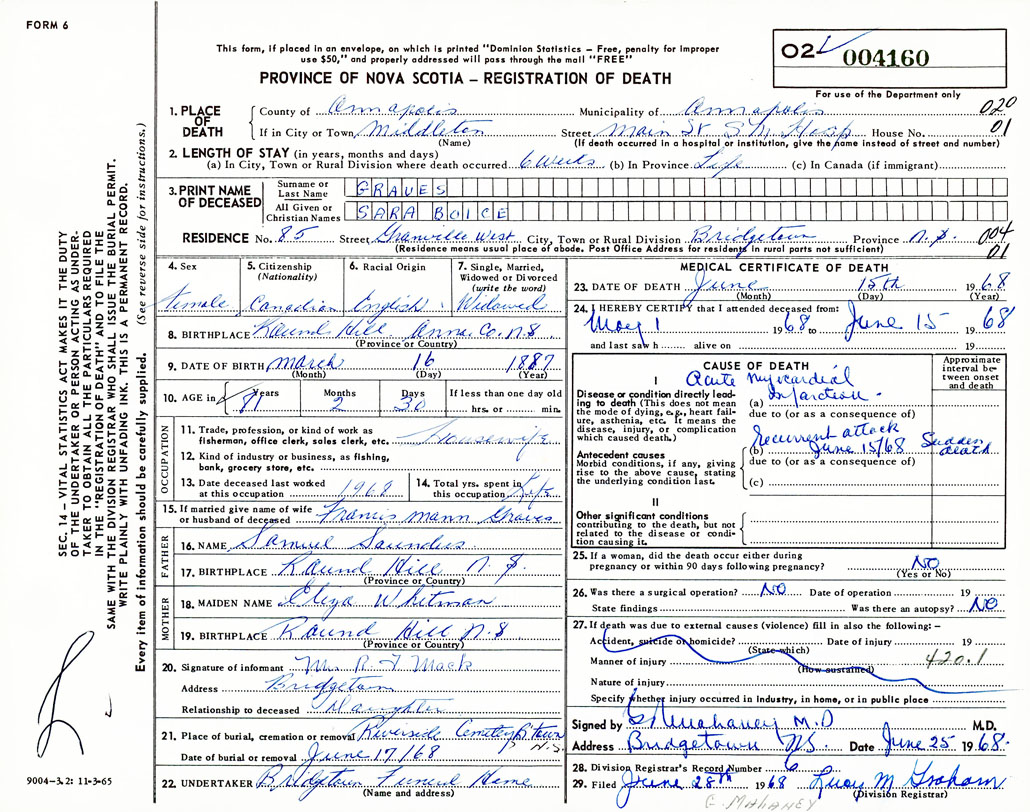 FORM 6
This form, if placed in an envelope, on which is printed "Dominion Statistics – Free, penalty for improper
use $50," and properly addressed will pass through the mail "FREE"
PROVINCE OF NOVA SCOTIA – REGISTRATION OF DEATH
02 004160
For use of the Department only
1. PLACE OF DEATH County of Annapolis Municipality of Annapolis 020
If in City or Town Middleton Street Main St S.M. Hosp House No. 01
(Name) (If death occurred in a hospital or institution, give the name instead of street and number)
2. LENGTH OF STAY (in years, months and days)
(a) In City, Town or Rural Division where death occurred 6 Weeks (b) In Province Life (c) In Canada (if immigrant)
3. PRINT NAME OF DECEASED Surname or Last Name GRAVES
All Given or Christian Names SARA BOICE
RESIDENCE No. 85 Street Granville West City, Town or Rural Division Bridgetown Province N.S. 004
(Residence means usual place of abode. Post Office Address for residents in rural parts not sufficient) 01
4. Sex 5. Citizenship (Nationality) 6. Racial Origin 7. Single, Married, Widowed or Divorced (write the word)
Female Canadian English Widowed
8. BIRTHPLACE Round Hill Anna. Co. N.S
(Province or Country)
9. DATE OF BIRTH March 16 1887
(Month) (Day) (Year)
10. AGE in Years Months Days If less than one day old
81 2 30 hrs. or min.
OCCUPATION
11. Trade, profession, or kind of work as
fisherman, office clerk, sales clerk, etc. Housewife
12. Kind of industry or business, as fishing,
bank, grocery store, etc.
13. Date deceased last worked at this occupation 1968 14. Total yrs. spent in this occupation Life
15. If married give name of wife
or husband of deceased Francis Mann Graves
FATHER
16. NAME Samuel Saunders
17. BIRTHPLACE Round Hill N.S.
(Province or Country)
MOTHER
18. MAIDEN NAME Eliza Whitman
19. BIRTHPLACE Round Hill N.S
(Province or Country)
20. Signature of informant Mrs R F Mack
Address Bridgetown
Relationship to deceased Daughter
21. Place of burial, cremation or removal Riverside Cemetery B'town N.S.
Date of burial or removal June 17/68
22. UNDERTAKER Bridgetown Funeral Home
(Name and address)
MEDICAL CERTIFICATE OF DEATH
23. DATE OF DEATH June 15th 1968
(Month) (Day) (Year)
24. I HEREBY CERTIFY that I attended deceased from:
May 1 1968 to June 15 1968
and last saw h alive on 19
CAUSE OF DEATH
Approximate interval between onset and death
I
Disease or condition directly leading to death (This does not mean
the mode of dying, e.g., heart failure, asthenia, etc. It means the
disease, injury, or complication
which caused death.)
(a) Acute myocardial infarction
due to (or as a consequence of)
Antecedent causes
Morbid conditions, if any, giving
rise to the above cause, stating
the underlying condition last.
(b) Recurrent attack June 15/68 Sudden death
due to (or as a consequence of)
(c)
II
Other significant conditions
contributing to the death, but not
related to the disease or condition causing it.
25. If a woman, did the death occur either during
pregnancy or within 90 days following pregnancy? NO
(Yes or No)
26. Was there a surgical operation? NO Date of operation 19
State findings Was there an autopsy? NO
27. If death was due to external causes (violence) fill in also the following: –
Accident, suicide or homicide? Date of injury 19
(State which)
Manner of injury 420.1
(How sustained)
Nature of injury
Specify whether injury occurred in industry, in home, or in public place
Signed by E Mahaney M.D M.D.
Address Bridgetown NS Date June 25 1968.
28. Division Registrar's Record Number 6
29. Filed June 28th 1968 Lucy M Graham
(Division Registrar)
E. MAHANEY
SEC. 14 – VITAL STATISTICS ACT MAKES IT THE DUTY
OF THE UNDERTAKER OR PERSON ACTING AS UNDER-
TAKER TO OBTAIN ALL THE PARTICULARS REQUIRED
IN THE "REGISTRATION OF DEATH" AND TO FILE THE
SAME WITH THE DIVISION REGISTRAR WHO SHALL ISSUE THE BURIAL PERMIT.
WRITE PLAINLY WITH UNFADING INK. THIS IS A PERMANENT RECORD.
Every item of information should be carefully supplied. (See reverse side for instructions.)
9004–3.2: 11-3-65